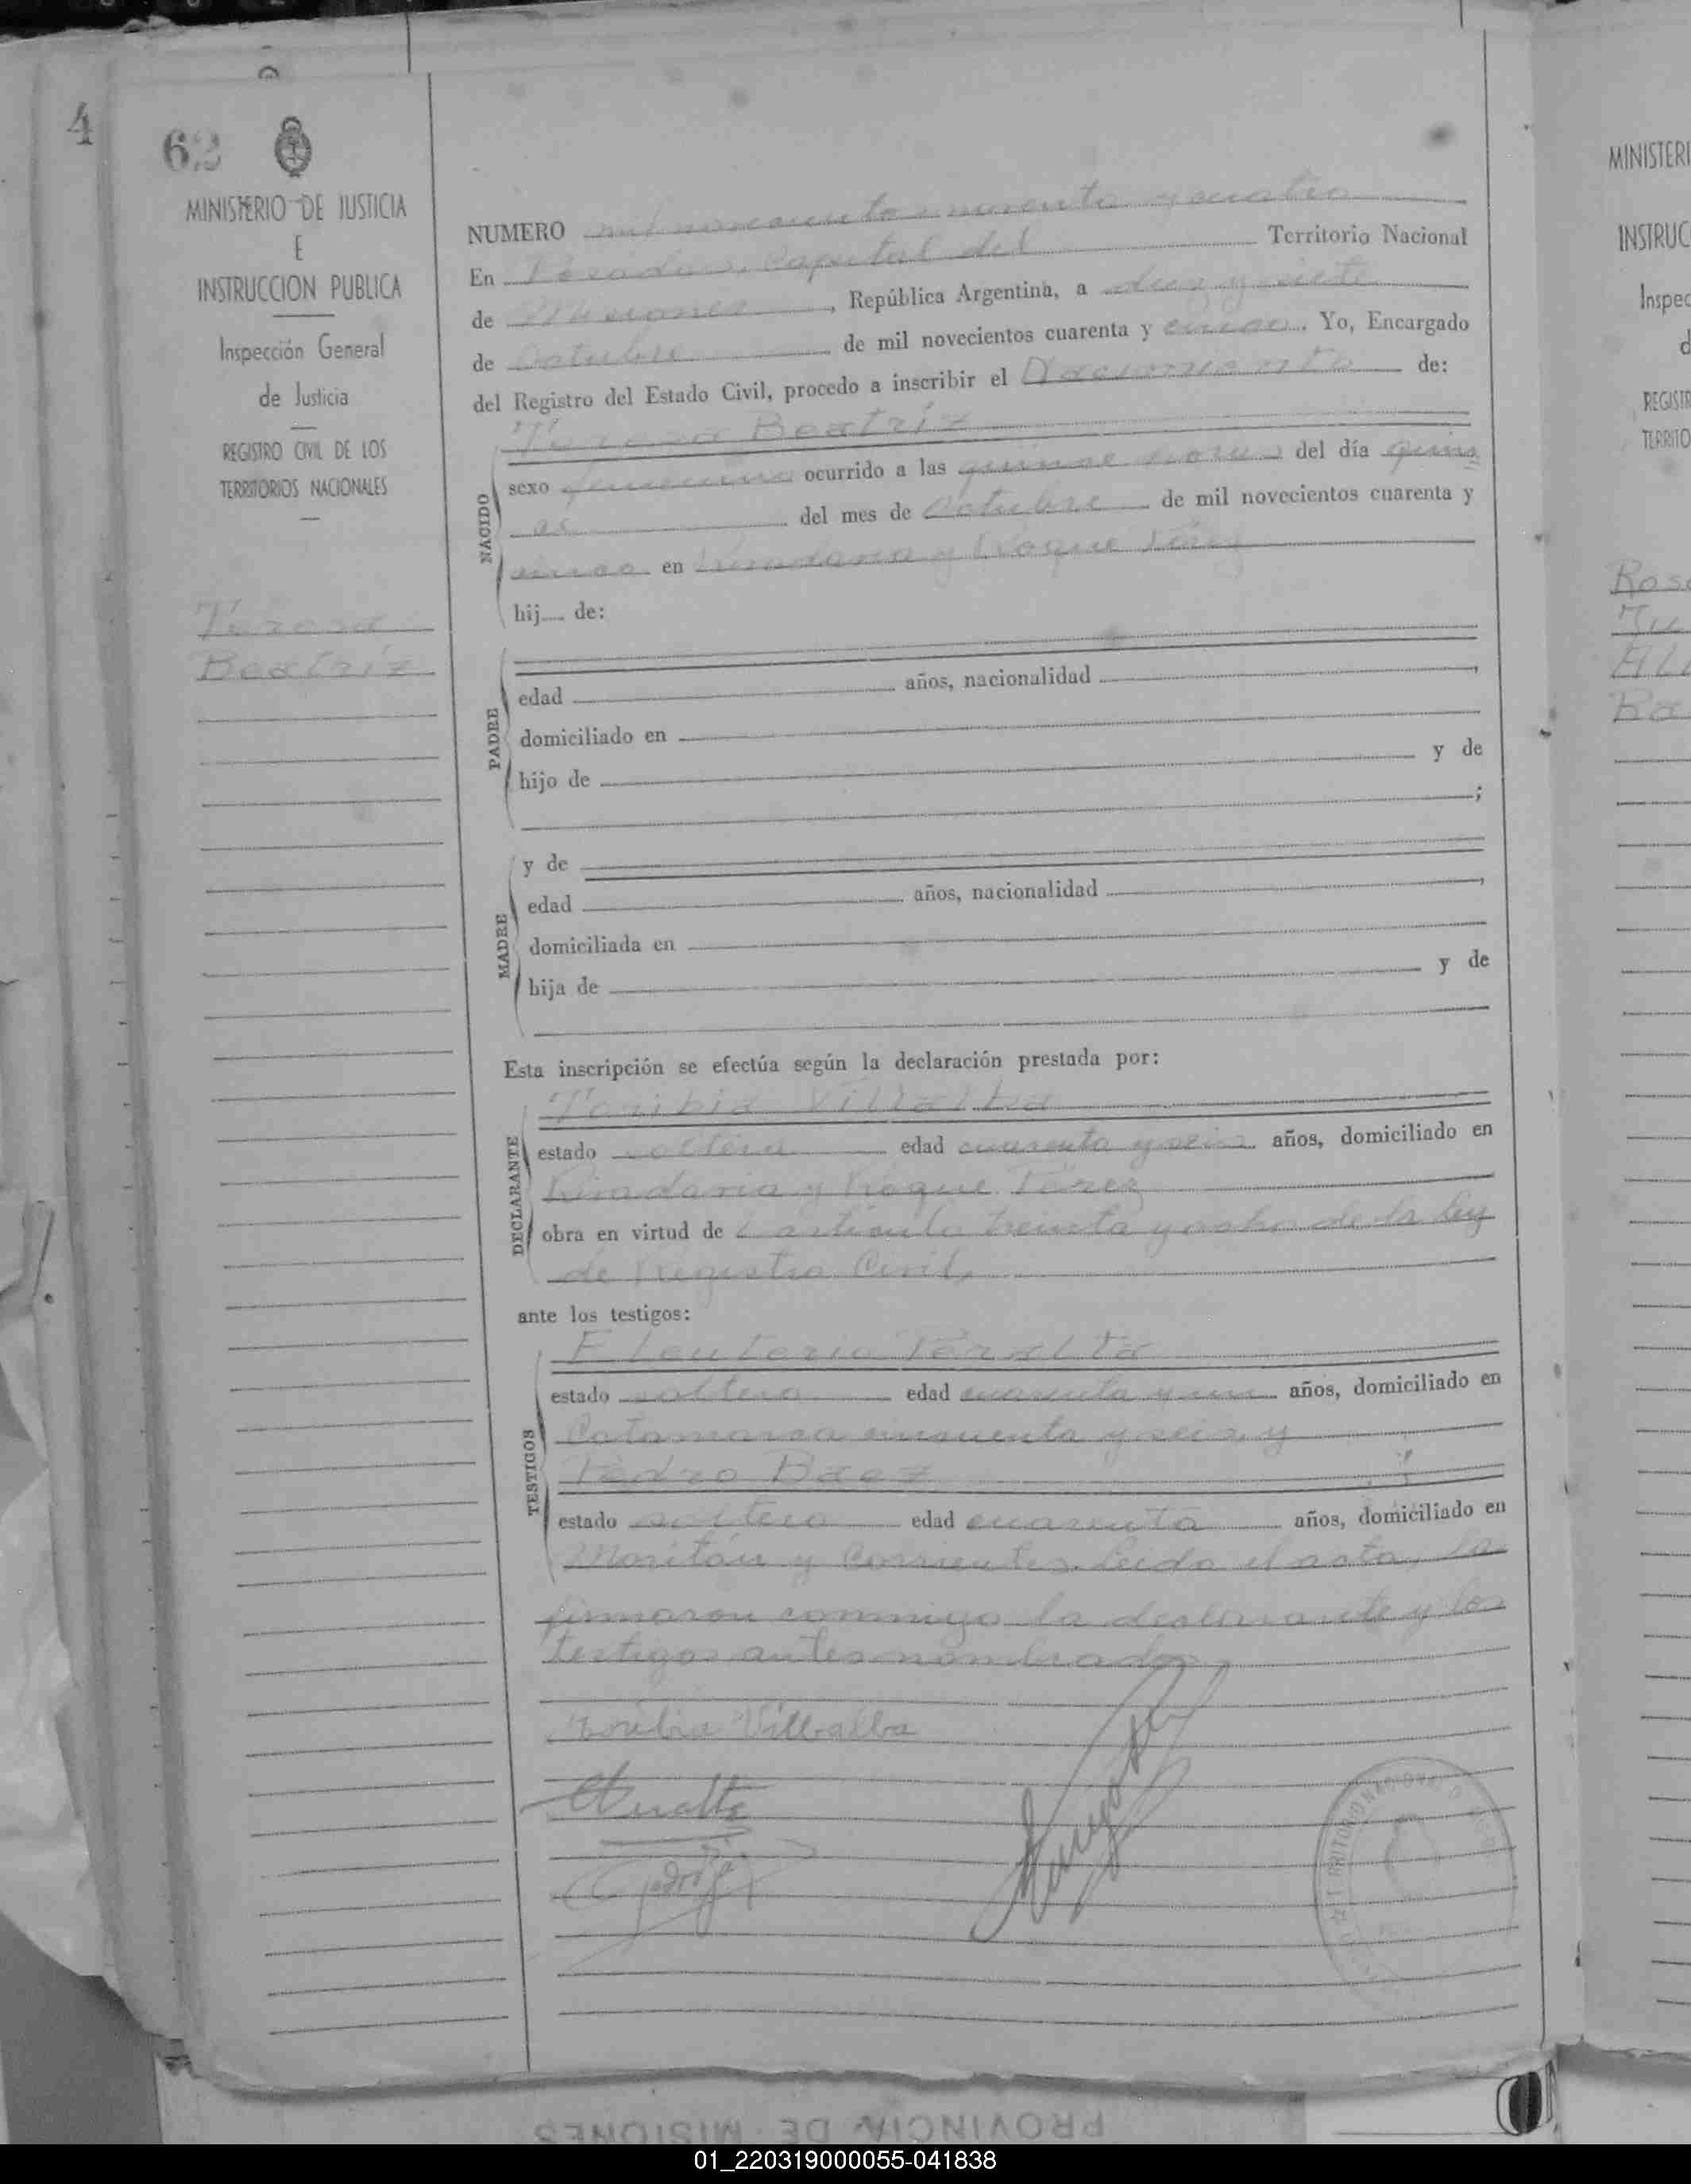 4
62
MINISTERIO DE JUSTICIA
E
INSTRUCCION PUBLICA
Inspección General
de Justicia
REGISTRO CIVIL DE LOS
TERRITORIOS NACIONALES
Teresa
Beatríz
NUMERO mil novecientos noventa y cuatro
En Posadas, Capital del Territorio Nacional
de Misiones, República Argentina, a diez y siete
de Octubre de mil novecientos cuarenta y cinco. Yo, Encargado
del Registro del Estado Civil, procedo a inscribir el Nacimiento de:
Teresa Beatríz
NACIDO
sexo femenino ocurrido a las quince horas del día quin
ce del mes de Octubre de mil novecientos cuarenta y
cinco en Rivadavia y Roque Pérez
hij.... de:
PADRE
edad años, nacionalidad ,
domiciliado en
hijo de y de
;
MADRE
y de
edad años, nacionalidad ,
domiciliada en
hija de y de
Esta inscripción se efectúa según la declaración prestada por:
DECLARANTE
Toribia Villalba
estado soltera edad cuarenta y seis años, domiciliado en
Rivadavia y Roque Pérez
obra en virtud de l artículo treinta y ocho de la ley
de Registro Civil,
ante los testigos:
TESTIGOS
Eleuterio Peralta
estado soltero edad cuarenta y un años, domiciliado en
Catamarca cincuenta y seis, y
Pedro Baez
estado soltero edad cuarenta años, domiciliado en
y Corrientes. Leída el acta, la
firmaron conmigo la declarante y los
testigos antes nombrados
Toribia Villalba
MINISTERI
INSTRUC
Inspec
d
REGISTR
TERRITO
PROVINCIA DE MISIONES
01_220319000055-041838